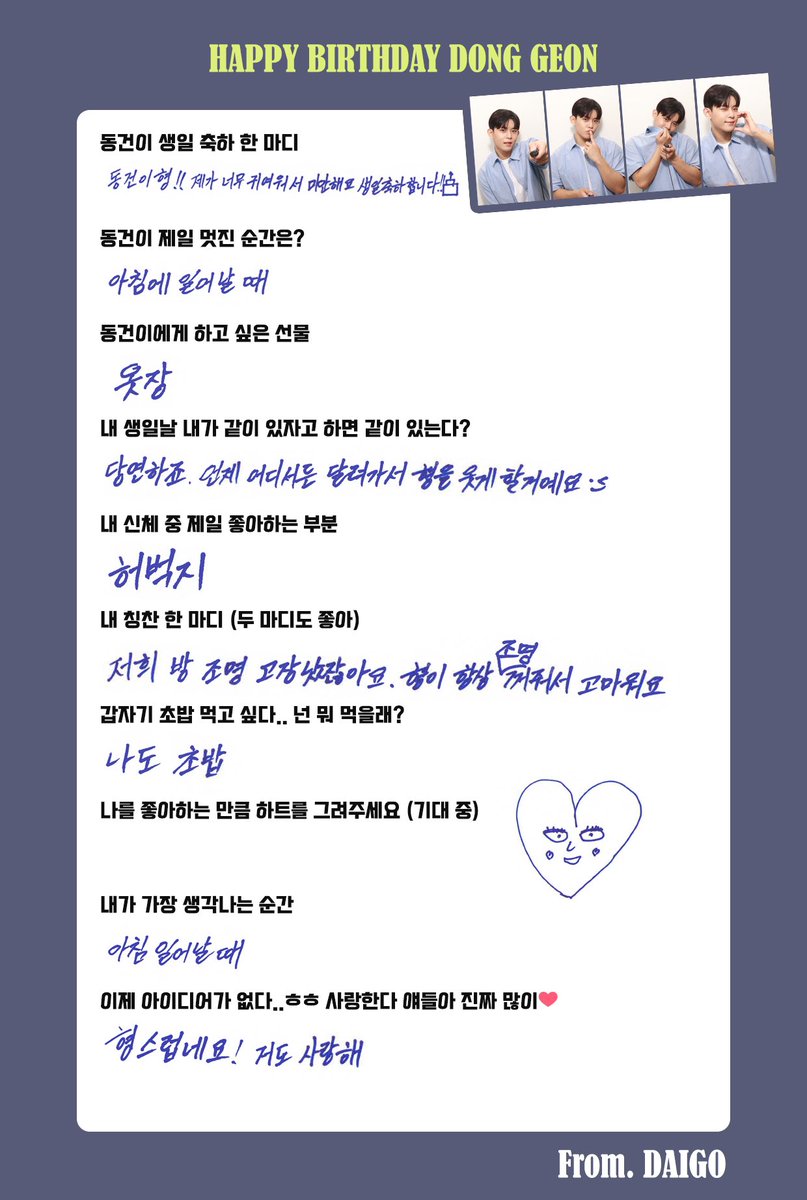 HAPPY BIRTHDAY DONG GEON
동건이 생일 축하 한 마디
동건이형!! 제가 너무 귀여워서 미안해요 생일축하합니다!!
동건이 제일 멋진 순간은?
아침에 일어날 때
동건이에게 하고 싶은 선물
옷장
내 생일날 내가 같이 있자고 하면 같이 있는다?
당연하죠. 언제 어디서든 달려가서 형을 웃게 할거예요
내 신체 중 제일 좋아하는 부분
허벅지
내 칭찬 한 마디 (두 마디도 좋아)
저희 방 조명 고장났잖아요. 형이 항상 조명 꺼줘서 고마워요
갑자기 초밥 먹고 싶다.. 넌 뭐 먹을래?
나도 초밥
나를 좋아하는 만큼 하트를 그려주세요 (기대 중)
내가 가장 생각나는 순간
아침 일어날 때
이제 아이디어가 없다..ㅎㅎ 사랑한다 얘들아 진짜 많이❤
형스럽네요! 저도 사랑해
From. DAIGO